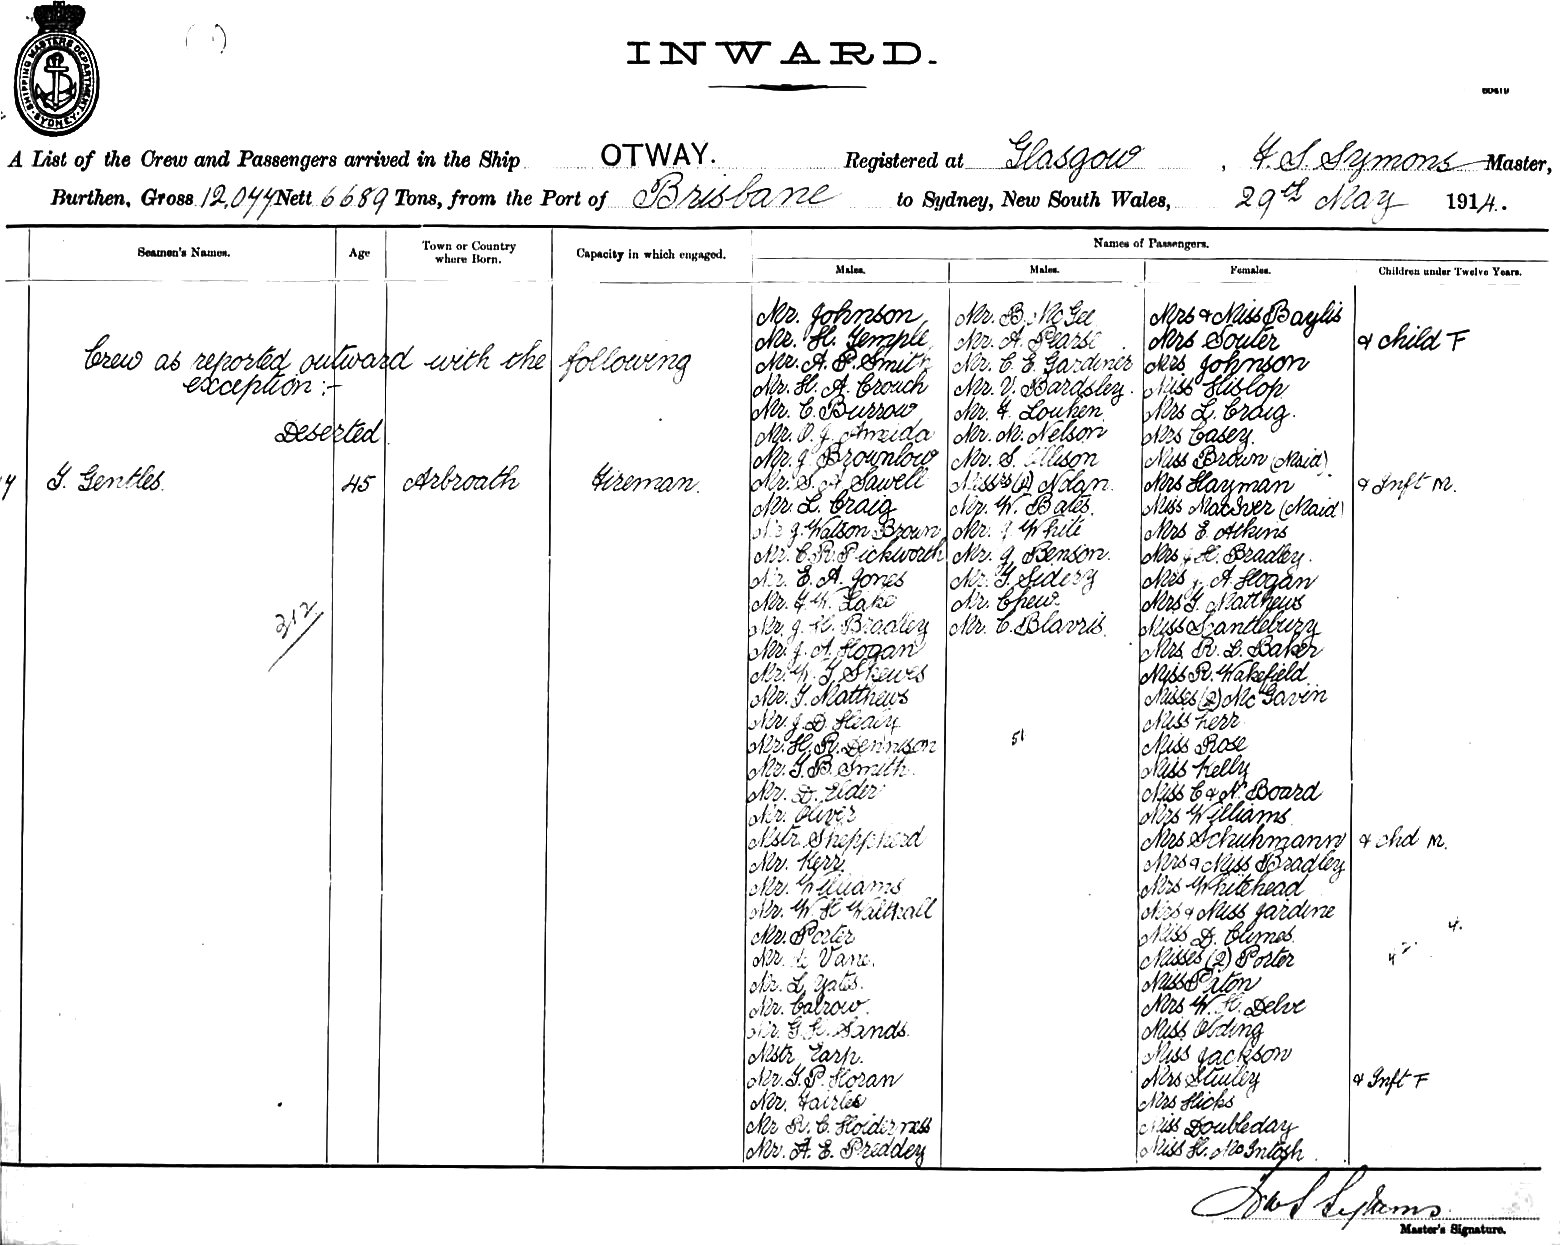 SHIPPING MASTERS DEPARTMENT
SYDNEY
INWARD.
A List of the Crew and Passengers arrived in the Ship OTWAY. Registered at Glasgow, F. S. Symons Master,
Burthen, Gross 12,077 Nett 6689 Tons, from the Port of Brisbane to Sydney, New South Wales, 29th May 1914.
Seamen's Names.
Age
Town or Country where Born.
Capacity in which engaged.
Names of Passengers.
Males.
Males.
Females.
Children under Twelve Years.
Crew as reported outward with the following
exception:-
Deserted
T. Gentles. 45 Arbroath Fireman.
312
Mr. Johnson
Mr. H. Temple
Mr. A. P. Smith
Mr. H. A. Crouch
Mr. C. Burrow
Mr. O. J. Ameida
Mr. J. Brownlow
Mr. S. A. Sawell
Mr. L. Craig
Mr J. Watson Brown
Mr. C. R. Pickworth
Mr. E. A. Jones
Mr. F. W. Lake
Mr. J. H. Bradley
Mr. J. A. Hogan
Mr. W. T. Skewes
Mr. T. Matthews
Mr. J. D. Healy
Mr. H. R. Dennison
Mr. T. B. Smith.
Mr. D. Elder
Mr. Oliver
Mstr. Shepperd
Mr. Kerr
Mr. Williams
Mr. W. H. Walthall
Mr. Porter
Mr. Vane.
Mr. L. Yates.
Mr. Calrow.
Mr. G. H. Sands.
Mstr. Earp.
Mr. T. P. Horan
Mr. Fairles
Mr R. C. Holderness
Mr. A. E. Preddey
Mr. B. McGee
Mr. A. Pearse
Mr. C. E. Gardiner
Mr. V. Bardsley.
Mr. F. Louken.
Mr. M. Nelson
Mr. S. Allison
Misses (2) Nolan.
Mr. W. Bates.
Mr. J. White
Mr. J. Benson.
Mr. T. Sidery
Mr. Chew
Mr. C. Blavris.
51
Mrs & Miss Baylis
Mrs Souter & Child F
Mrs Johnson
Miss Hislop
Mrs L. Craig.
Mrs Casey.
Miss Brown (Maid)
Mrs Hayman & Inft M.
Miss MacIver (Maid)
Mrs E. Atkins
Mrs J. H. Bradley.
Mrs J. A. Hogan
Mrs T. Matthews
Miss Santlebury
Mrs. R. L. Baker
Miss R. Wakefield
Misses (2) McGavin
Miss Kerr
Miss Rose
Miss Kelly
Miss C & N. Board
Mrs Williams
Mrs Schuhmann & Chd M.
Mrs & Miss Bradley
Mrs Whitehead
Mrs & Miss Jardine
Miss D. Climes.
Misses (2) Porter
Miss Piton
Mrs W. H. Delve
Miss Olding
Miss Jackson
Mrs Stuiley & Inft F
Mrs Hicks
Miss Doubleday
Miss H. McIntosh.
4.
Master's Signature.